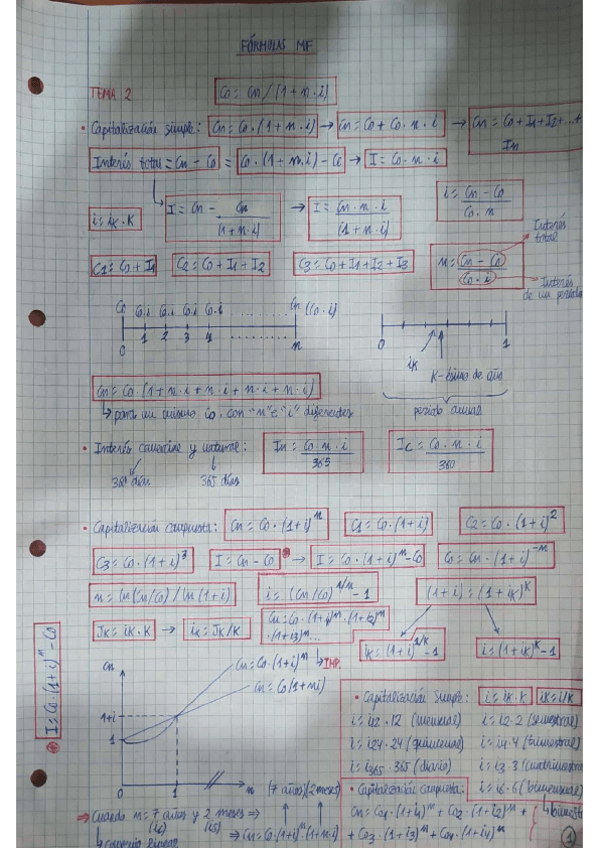 FÓRMULAS MF
TEMA 2
Co = Cn/(1+n·i)
• Capitalización simple: Cn = Co·(1+n·i) → Cn = Co + Co·n·i → Cn = Co + I1 + I2 + ... + In
Interés total = Cn - Co = Co·(1+n·i) - Co → I = Co·n·i
i = ik·K
I = Cn - Cn/(1+n·i) → I = Cn·n·i/(1+n·i)
i = Cn - Co/Co·n
C1 = Co + I1
C2 = Co + I1 + I2
C3 = Co + I1 + I2 + I3
n = Cn - Co/Co·i
Interés total
Interés de un período
Co Co·i Co·i Co·i Co·i ........ Cn (Co·i)
0 1 2 3 4 ........ n
0 1
ik
K-ésimo de año
período anual
Cn = Co·(1+n·i+n·i+n·i+n·i)
↳ para un mismo Co, con "n" e "i" diferentes
• Interés comercial y natural: In = Co·n·i/365 Ic = Co·n·i/360
360 días 365 días
• Capitalización compuesta: Cn = Co·(1+i)^n C1 = Co·(1+i) C2 = Co·(1+i)^2
C3 = Co·(1+i)^3 I = Cn - Co → I = Co·(1+i)^n - Co Co = Cn·(1+i)^-n
n = Ln(Cn/Co)/Ln(1+i) i = (Cn/Co)^1/n - 1 (1+i) = (1+ik)^K
Jk = ik·K → ik = Jk/K
Cn = Co·(1+i1)^n·(1+i2)^n
·(1+i3)^n...
ik = (1+i)^1/K - 1 i = (1+ik)^K - 1
I = Co·(1+i)^n - Co
Cn
Cn = Co·(1+i)^n → IMP.
Cn = Co(1+ni)
1+i
1
0 1 n
• Capitalización simple: i = ik·K ik = i/K
i = i12·12 (mensual) i = i2·2 (semestral)
i = i24·24 (quincenal) i = i4·4 (trimestral)
i = i365·365 (diario) i = i3·3 (cuatrimestral)
i = i6·6 (bimensual)
↳ bimestral
(7 años) (2 meses)
• Capitalización compuesta:
Cn = Co1·(1+i1)^n + Co2·(1+i2)^n +
+ Co3·(1+i3)^n + Co4·(1+i4)^n
⇒ Cuando n = 7 años y 2 meses ⇒
↳ convenio lineal ⇒ Cn = Co·(1+i)^n·(1+n·i)
1